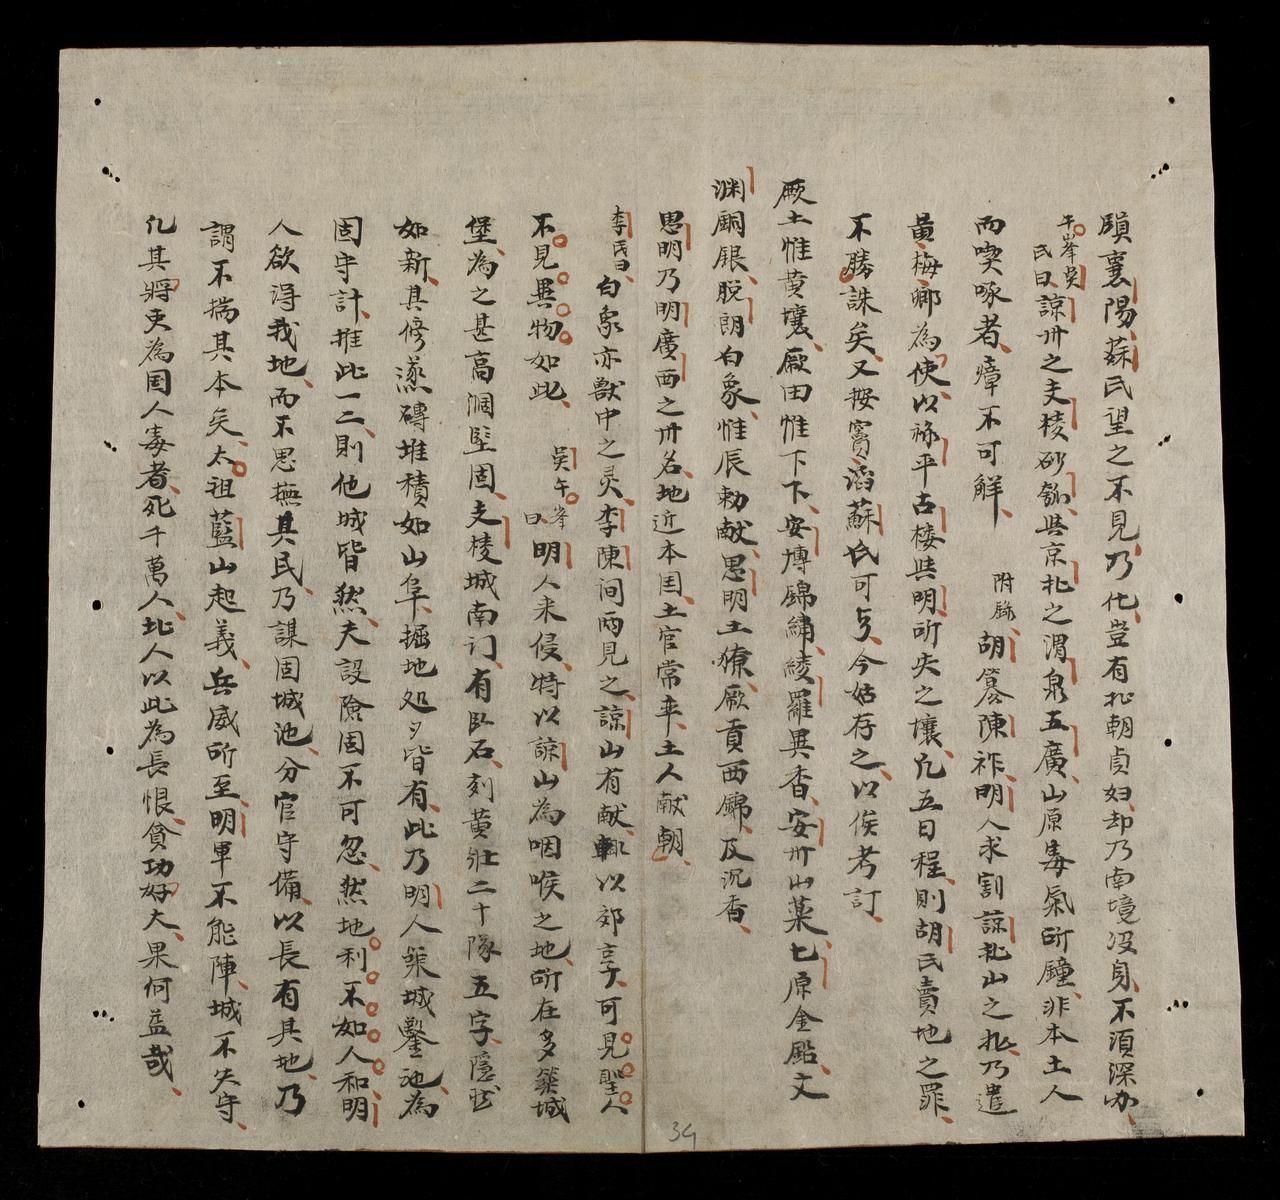 頋襄陽蘇氏望之不見乃化豈有北朝貞妇却乃南境没身不須深办
午峯吳氏曰諒州之支棱砂匏與京北之渭泉五廣山原毒氣所鍾非本土人
而喫啄者瘴不可解 附錄 胡篡陳祚明人求割諒北山之北乃遣
黄梅鄉為使以祿平古楼與明所失之壤凡五日程則胡氏賣地之罪
不勝誅矣又按竇滔蘇氏可考今姑存之以俟考訂
厥土惟黄壤厥田惟下下安博錦繡綾羅異香安州山藥七原金鉛文
渊銅銀脱朗白象惟辰勅献思明土獠厥貢西錦及沉香
思明乃明廣西之州名地近本国土官常率土人献朝
李氏曰白象亦獸中之灵李陳间兩見之諒山有献輙以郊享可見聖人
不見異物如此 吳午峯曰明人来侵特以諒山為咽喉之地所在多築城
堡為之甚高濶堅固支棱城南门有卧石刻黄壯二十隊五字隱然
如新其修塗磚堆積如山阜掘地処夕皆有此乃明人築城鑿池為
固守計推此一二則他城皆然夫設險固不可忽然地利不如人和明
人欲得我地而不思撫其民乃謀固城池分官守備以長有其地乃
謂不揣其本矣太祖藍山起義兵威所至明軍不能陣城不失守
凡其將吏為国人毒者死千萬人北人以此為長恨貪功好大果何益哉